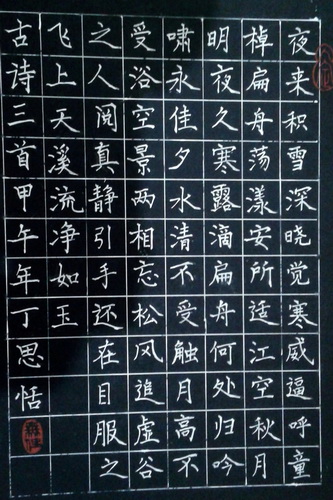 夜来积雪深晓觉寒威逼呼童
棹扁舟荡漾安所适江空秋月
明夜久寒露滴扁舟何处归吟
啸永佳夕水清不受触月高不
受浴空景两相忘松风追虚谷
之人阅真静引手还在目服之
飞上天溪流净如玉
古诗三首甲午年丁思恬